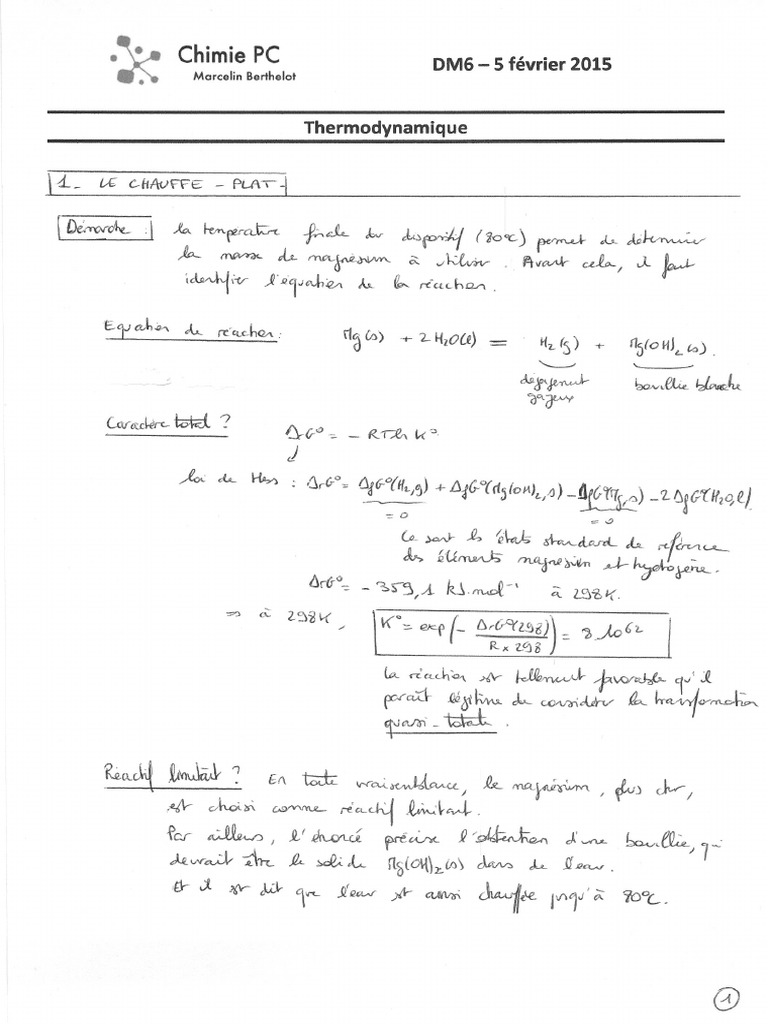 Chimie PC
Marcelin Berthelot
DM6 – 5 février 2015
Thermodynamique
1_ LE CHAUFFE - PLAT -
Démarche : la température finale du dispositif (80°C) permet de déterminer
la masse de magnésium à utiliser. Avant cela, il faut
identifier l'équation de la réaction.
Equation de réaction : Mg(s) + 2 H2O(l) = H2(g) + Mg(OH)2(s).
dégagement gazeux
bouillie blanche
Caractère total ? ΔrG° = - RT ln K°
loi de Hess : ΔrG° = ΔfG°(H2,g) + ΔfG°(Mg(OH)2,s) - ΔfG°(Mg,s) - 2 ΔfG°(H2O,l)
= 0
= 0
Ce sont les états standard de référence
des éléments magnésium et hydrogène.
ΔrG° = - 359,1 kJ.mol⁻¹ à 298K.
⇒ à 298K, K° = exp(- ΔrG°(298) / R × 298) = 8.10^62
La réaction est tellement favorable qu'il
paraît légitime de considérer la transformation
quasi-totale.
Réactif limitant ? En toute vraisemblance, le magnésium, plus cher,
est choisi comme réactif limitant.
Par ailleurs, l'énoncé précise l'obtention d'une bouillie, qui
devrait être le solide Mg(OH)2(s) dans de l'eau.
Et il est dit que l'eau est aussi chauffée jusqu'à 80°C.
1